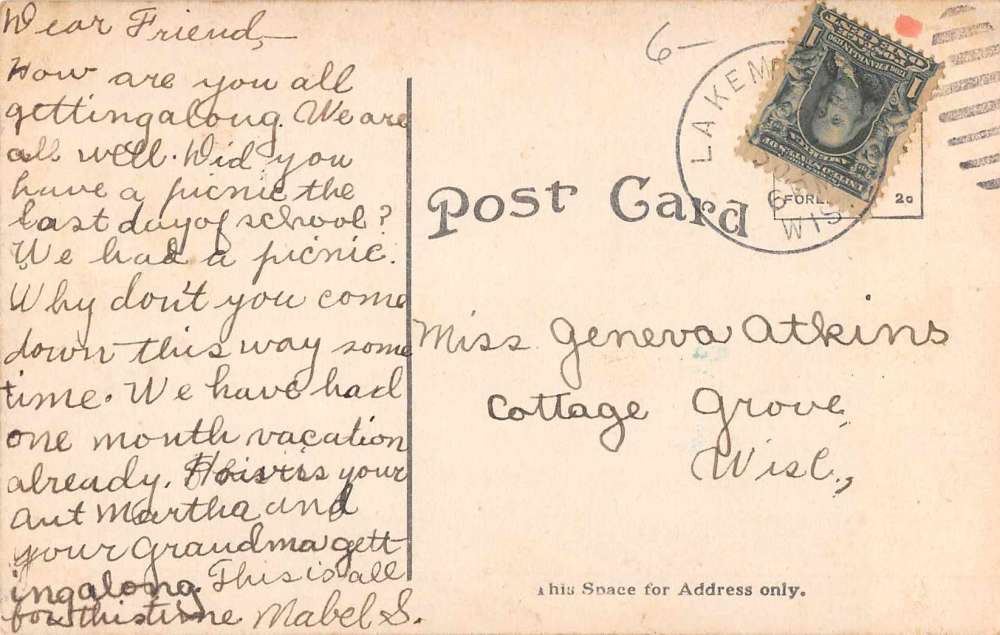 Dear Friend,-
How are you all
getting along. We are
all well. Did you
have a picnic the
last day of school?
We had a picnic.
Why don't you come
down this way some
time. We have had
one month vacation
already. How is your
ant Martha and
your Grandma gett
ing along. This is all
for this time Mabel S.
6-
LAKEM
6
WIS
1 1
FOR
2c
Post Card
Miss Geneva Atkins
Cottage Grove,
Wisc.,
his Space for Address only.